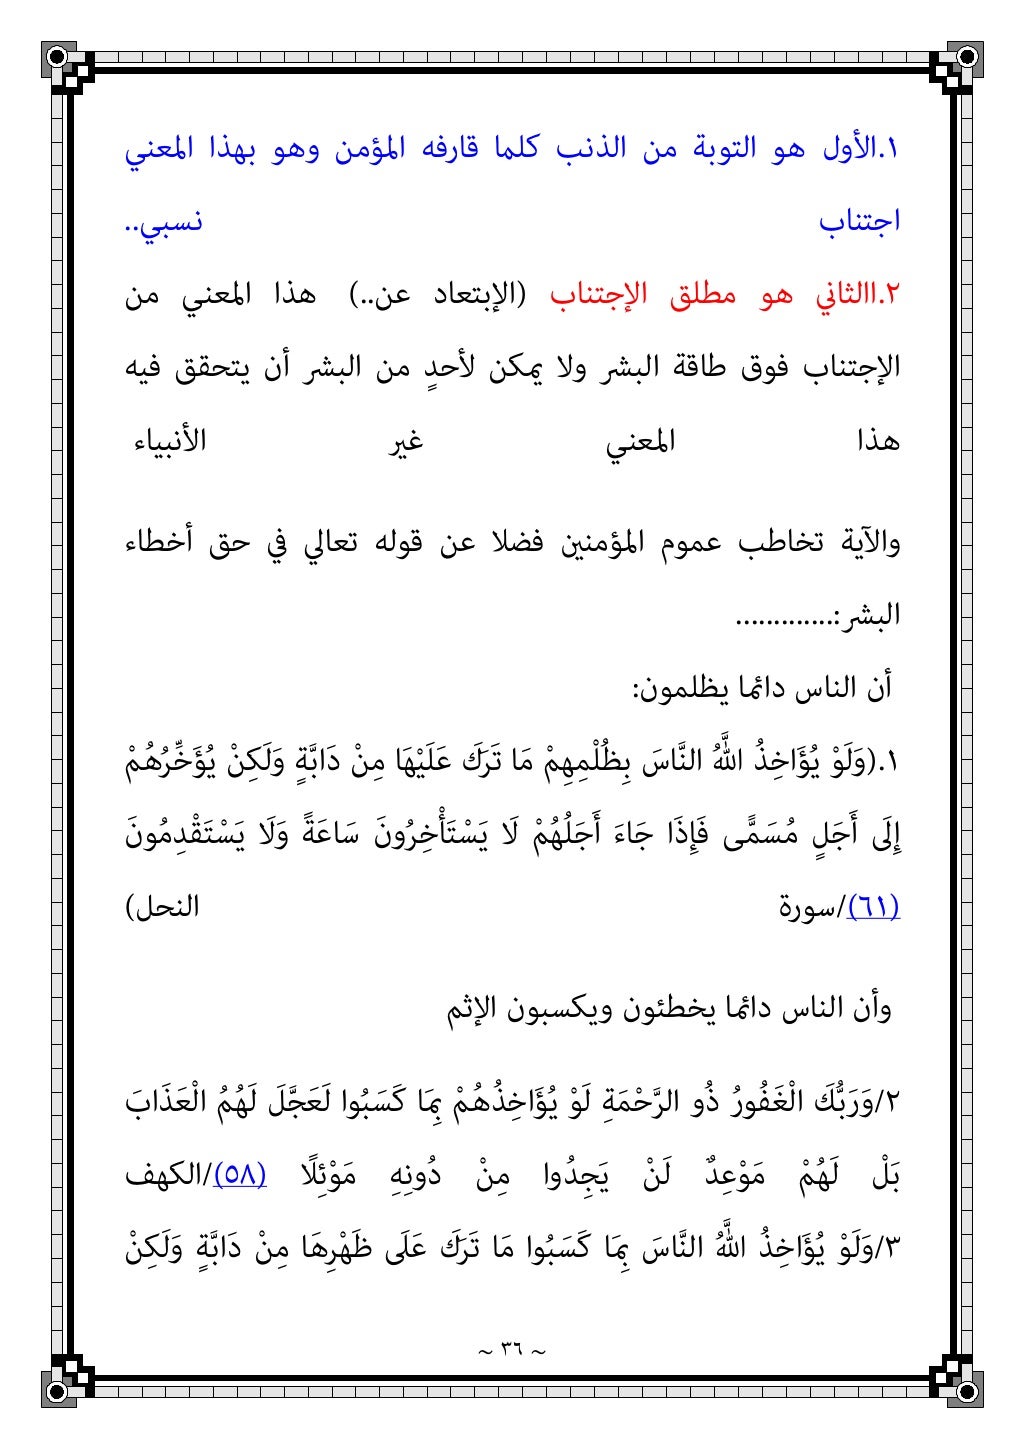 ١.الأول هو التوبة من الذنب كلما قارفه المؤمن وهو بهذا المعني
اجتناب نسبي..
٢.االثاني هو مطلق الإجتناب (الإبتعاد عن..) هذا المعني من
الإجتناب فوق طاقة البشر ولا يمكن لأحدٍ من البشر أن يتحقق فيه
هذا المعني غير الأنبياء
والآية تخاطب عموم المؤمنين فضلا عن قوله تعالي في حق أخطاء
البشر:.............
أن الناس دائما يظلمون:
١.(وَلَوْ يُؤَاخِذُ اللَّهُ النَّاسَ بِظُلْمِهِمْ مَا تَرَكَ عَلَيْهَا مِنْ دَابَّةٍ وَلَكِنْ يُؤَخِّرُهُمْ
إِلَى أَجَلٍ مُسَمًّى فَإِذَا جَاءَ أَجَلُهُمْ لَا يَسْتَأْخِرُونَ سَاعَةً وَلَا يَسْتَقْدِمُونَ
(٦١)/سورة النحل)
وأن الناس دائما يخطئون ويكسبون الإثم
٢/وَرَبُّكَ الْغَفُورُ ذُو الرَّحْمَةِ لَوْ يُؤَاخِذُهُمْ بِمَا كَسَبُوا لَعَجَّلَ لَهُمُ الْعَذَابَ
بَلْ لَهُمْ مَوْعِدٌ لَنْ يَجِدُوا مِنْ دُونِهِ مَوْئِلًا (٥٨)/الكهف
٣/وَلَوْ يُؤَاخِذُ اللَّهُ النَّاسَ بِمَا كَسَبُوا مَا تَرَكَ عَلَى ظَهْرِهَا مِنْ دَابَّةٍ وَلَكِنْ
~ ٣٦ ~